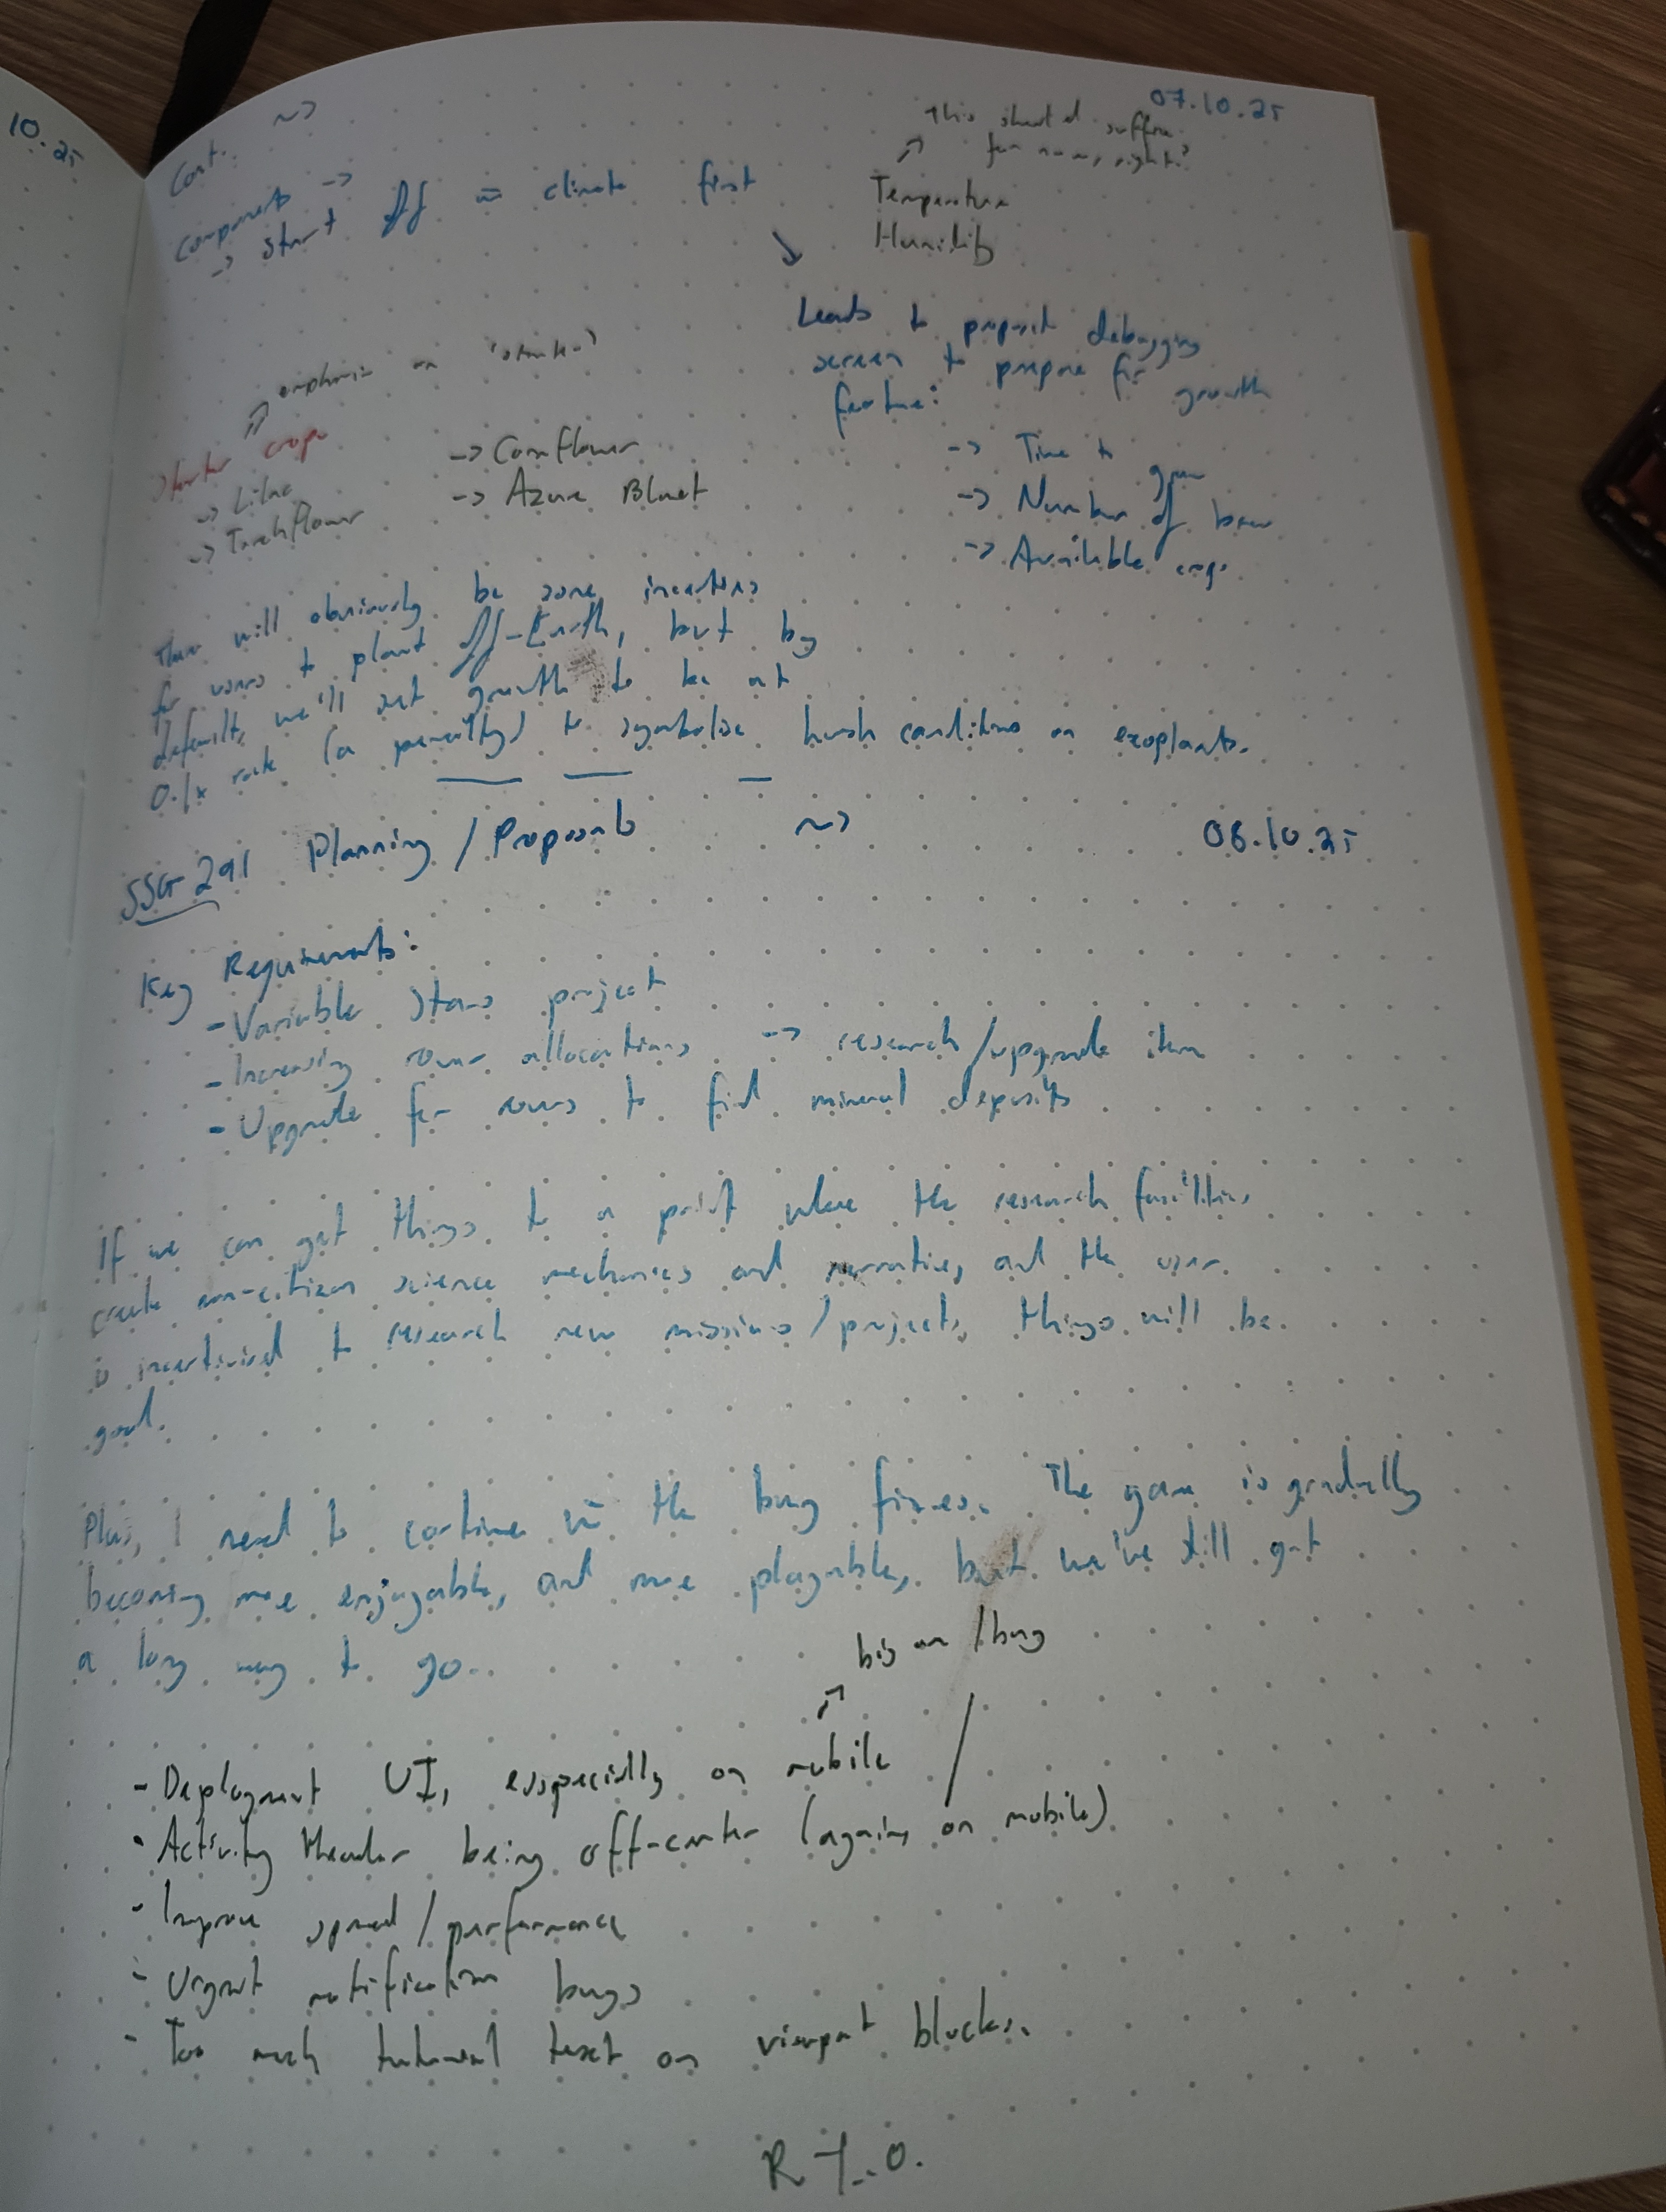 10.25
Cont. ~>
07.10.25
This should suffice
for now, right?
Components ->
-> start off w climate first
Temperature
Humidity
Leads to proposit debugging
screen to prepare for growth
feature:
-> Time to grow
-> Number of bees
-> Available crops
emphasis on 'starter'
Starter crops
-> Lilac
-> Torchflower
-> Cornflower
-> Azure Bluet
There will obviously be some incentives
for users to plant off-Earth, but by
default, we'll set growth to be at
0.1x rate (a penalty) to symbolise harsh conditions on exoplants.
SSG-291 Planning / Proposals ~>
08.10.25
Key Requirements:
- Variable Stars project
- Increasing rover allocations -> research/upgrade item
- Upgrade for rovers to find mineral deposits
If we can get things to a point where the research facilities
create non-citizen science mechanics and narrative, and the user
is incentivised to research new missions/projects, things will be
good.
Plus, I need to continue w the bug fixes. The game is gradually
becoming more enjoyable, and more playable, but we've still got
a long way to go.
big one / bug
- Deployment UI, especially on mobile /
- Activity Header being off-center (again, on mobile)
- Improve speed / performance
- Urgent notification bugs
- Too much tutorial text on viewport blocks.